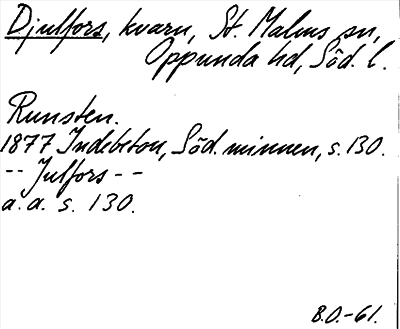 Djulfors, kvarn, St. Malms sn,
Oppunda hd, Söd. l.
Runsten.
1877 Indebetou, Söd. minnen, s. 130.
-- Julfors --
a. a. s. 130.
B.O.-61.